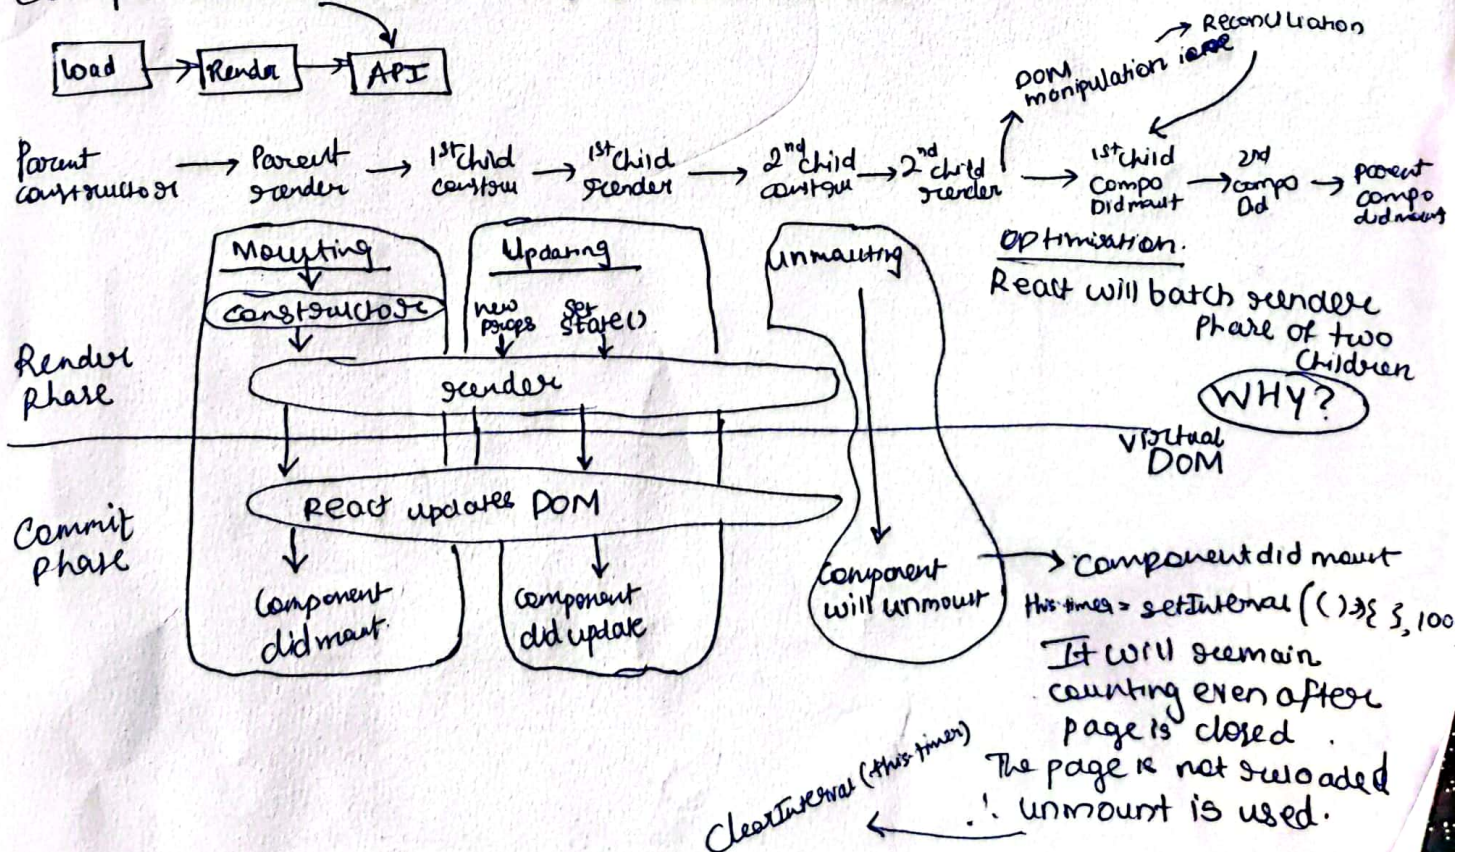 Load → Render → API
→ Reconciliation
DOM
manipulation
Parent
constructor
→ Parent
render
→ 1st child
constru
→ 1st child
render
→ 2nd child
constru
→ 2nd child
render
→ 1st child
Compo
Did mount
→ 2nd
compo
Did
→ parent
compo
did mount
Optimisation.
React will batch render
phase of two
children
WHY?
Render
Phase
Mounting
constructor
Updating
new
props
set
state()
render
Unmounting
Virtual
DOM
Commit
Phase
React updates DOM
Component
did mount.
component
did update
Component
will unmount
→ component did mount
this.timer = setInterval (() => { }, 100
It will remain
counting even after
page is closed.
The page is not reloaded
∴ unmount is used.
ClearInterval (this.timer)